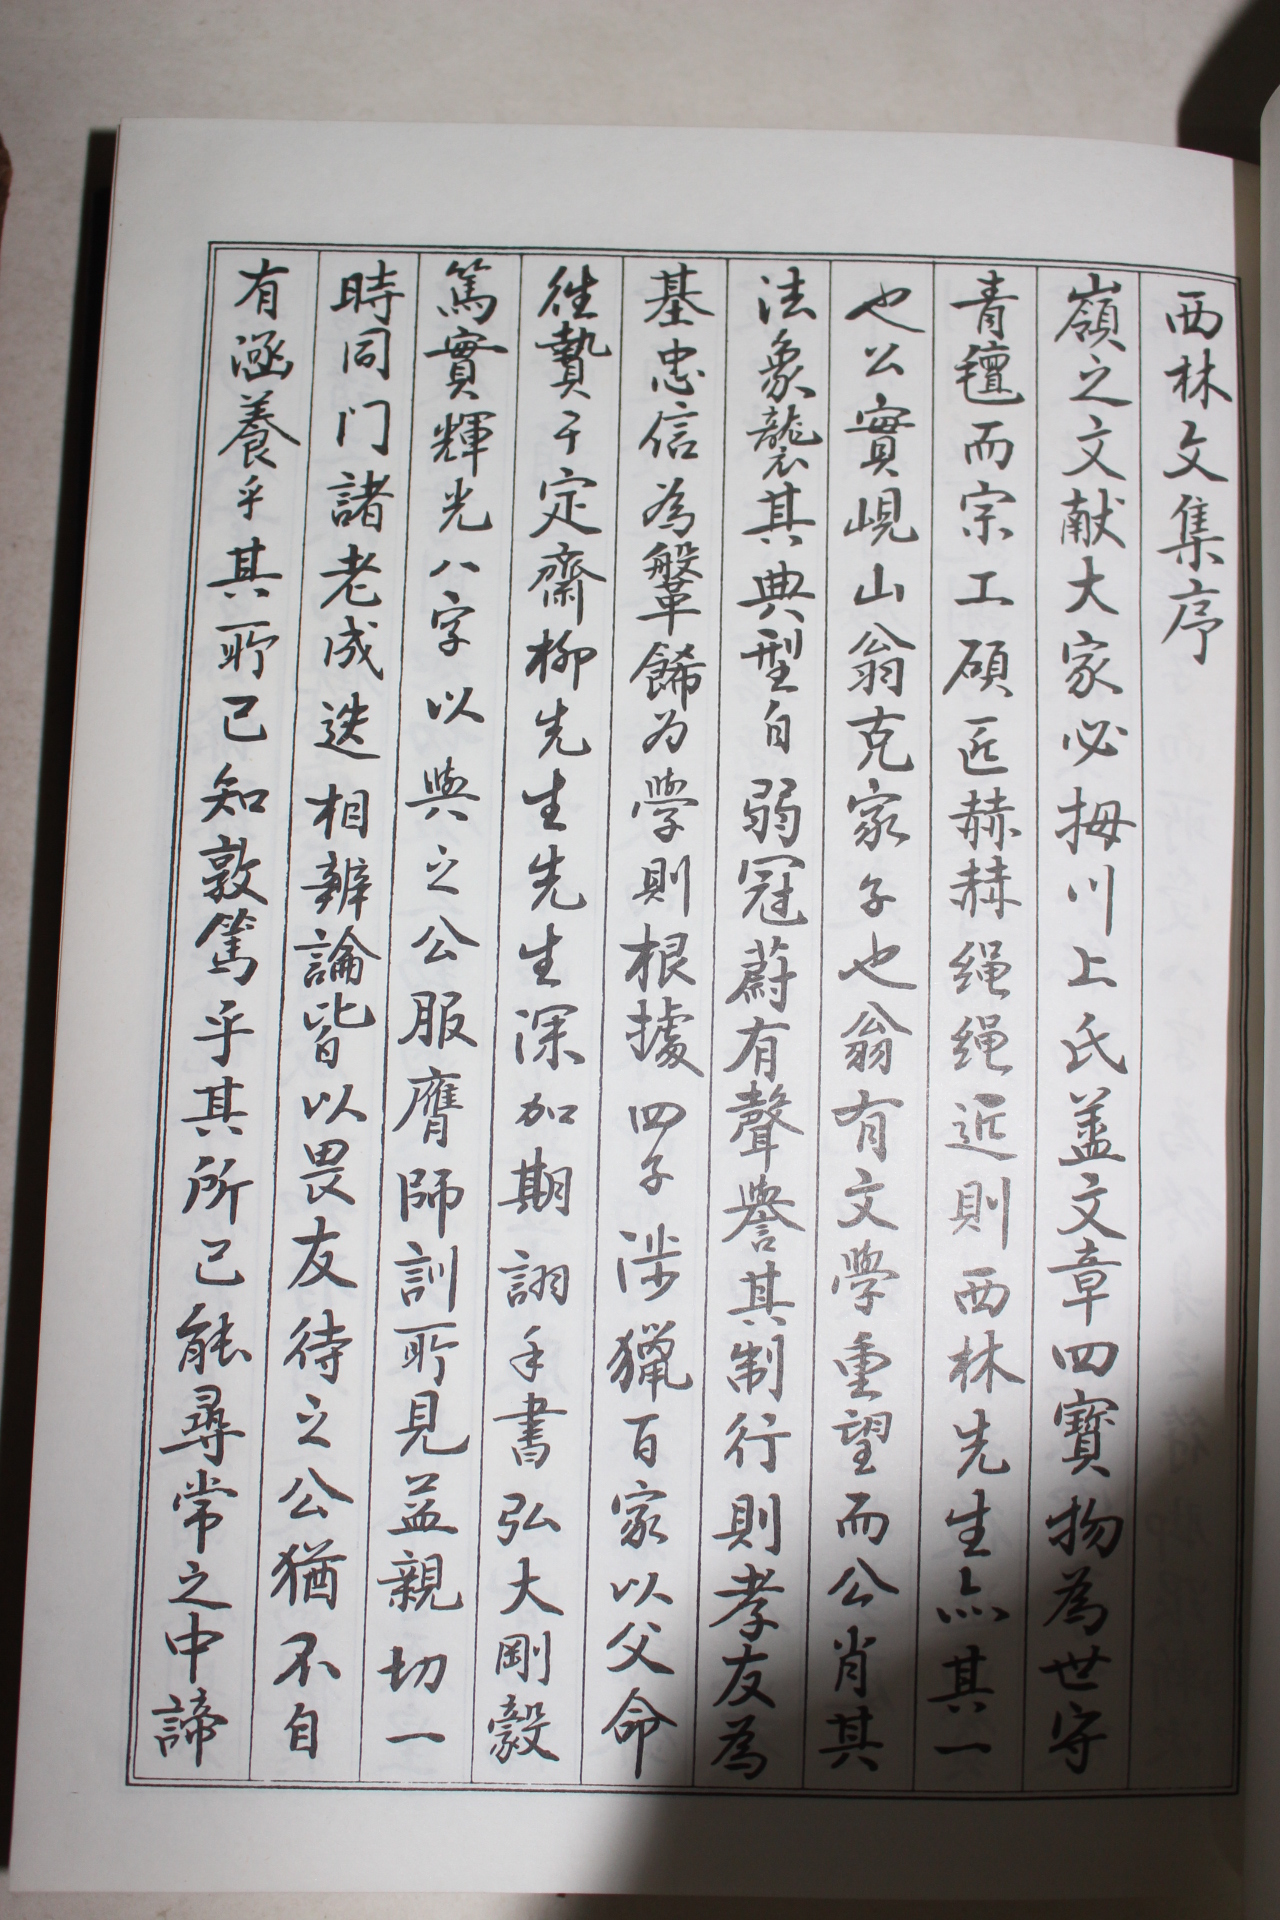 西林文集序
嶺之文献大家必拇川上氏盖文章四寶物為世守
青氊而宗工碩匠赫赫绳绳近則西林先生亦其一
也公實峴山翁克家子也翁有文學重望而公肖其
法象襲其典型自弱冠蔚有聲譽其制行則孝友為
基忠信為鞶餙为學則根據四子涉獵百家以父命
徃贄于定齋柳先生先生深加期詡手書弘大剛毅
篤實輝光八字以與之公服膺師訓所見益親切一
時同门諸老成迭相辨論皆以畏友待之公猶不自
有涵養乎其所已知敦篤乎其所已能尋常之中諦